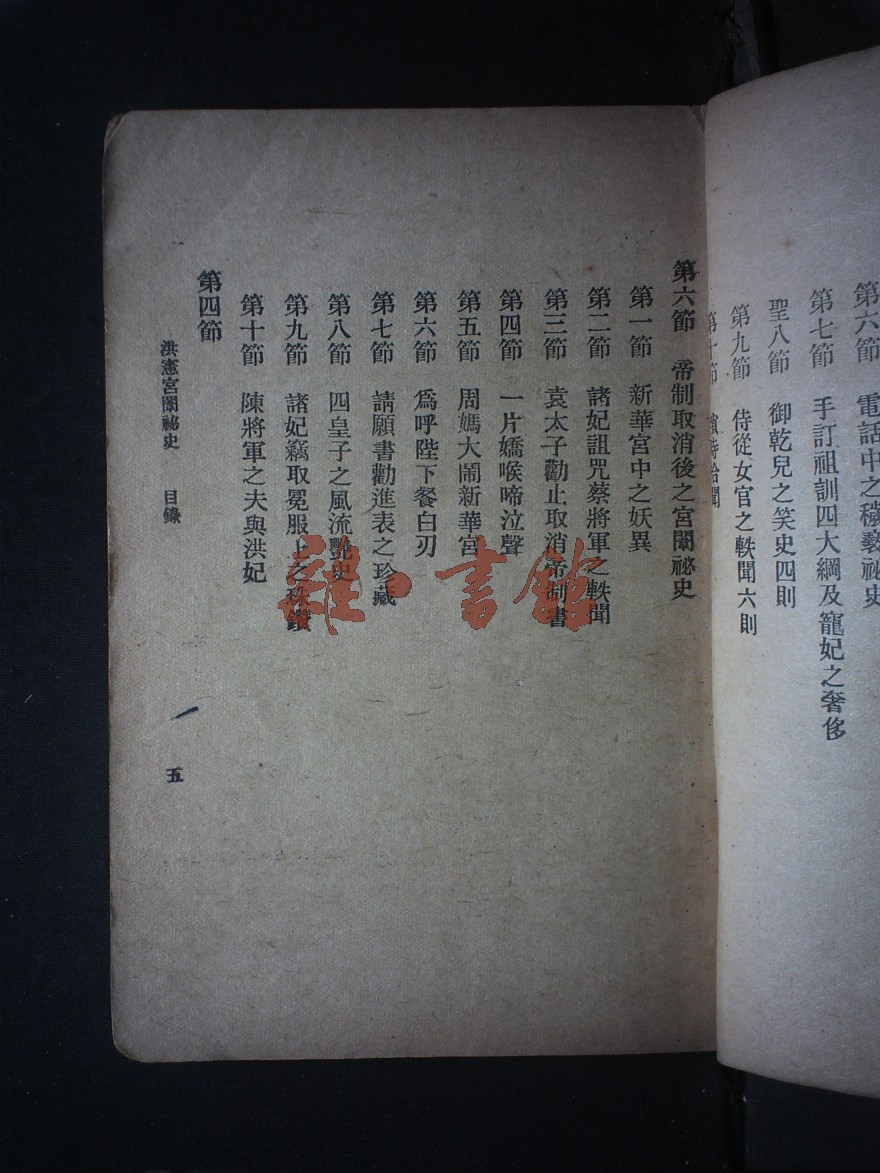 第六節 電話中之穢褻祕史
第七節 手訂祖訓四大綱及寵妃之奢侈
聖八節 御乾兒之笑史四則
第九節 侍從女官之軼聞六則
第十節
第六節 帝制取消後之宮闈祕史
第一節 新華宮中之妖異
第二節 諸妃詛咒蔡將軍之軼聞
第三節 袁太子勸止取消帝制書
第四節 一片嬌喉啼泣聲
第五節 周媽大鬧新華宮
第六節 爲呼陛下餐白刃
第七節 請願書勸進表之珍藏
第八節 四皇子之風流艷史
第九節 諸妃竊取冕服上之珠鑽
第十節 陳將軍之夫與洪妃
第四節
洪憲宮闈祕史 目錄
五
龍·書館